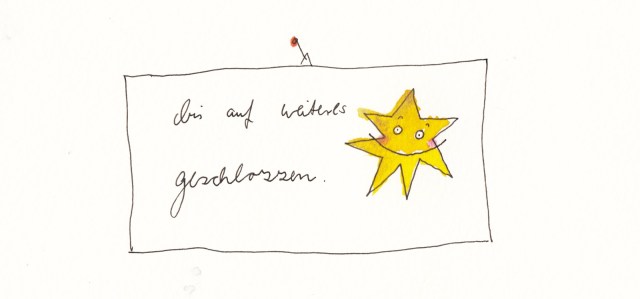 bis auf weiteres
geschlossen.